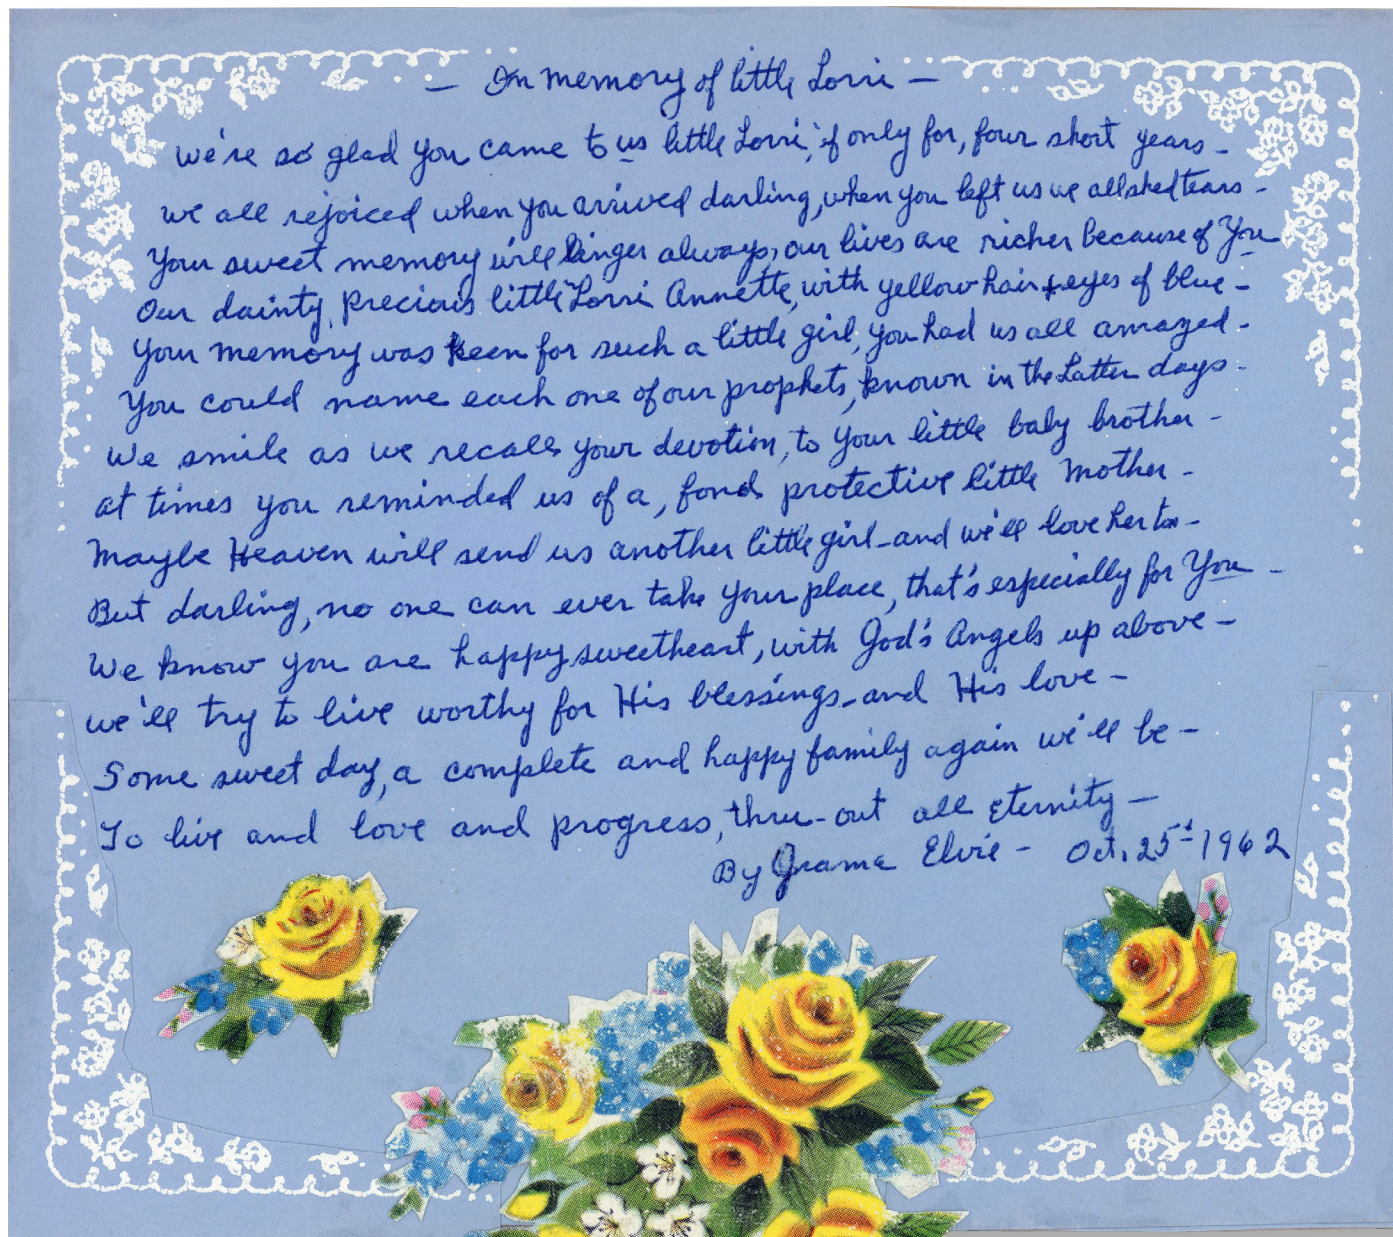 — In memory of little Lorri —
We're so glad you came to us little Lorri, if only for, four short years -
we all rejoiced when you arrived darling, when you left us we all shed tears -
Your sweet memory will linger always, our lives are richer because of You
Our dainty, precious little Lorri Annette, with yellow hair + eyes of blue -
Your memory was keen for such a little girl, you had us all amazed -
You could name each one of our prophets, known in the Latter days -
We smile as we recall your devotion, to your little baby brother -
at times you reminded us of a, fond protective little Mother -
Maybe Heaven will send us another little girl - and we'll love her too -
But darling, no one can ever take your place, that's especially for You -
We know you are happy sweetheart, with God's Angels up above -
we'll try to live worthy for His blessings - and His love -
Some sweet day, a complete and happy family again we'll be -
To live and love and progress, thru-out all Eternity —
By Grama Elvie - Oct. 25th 1962